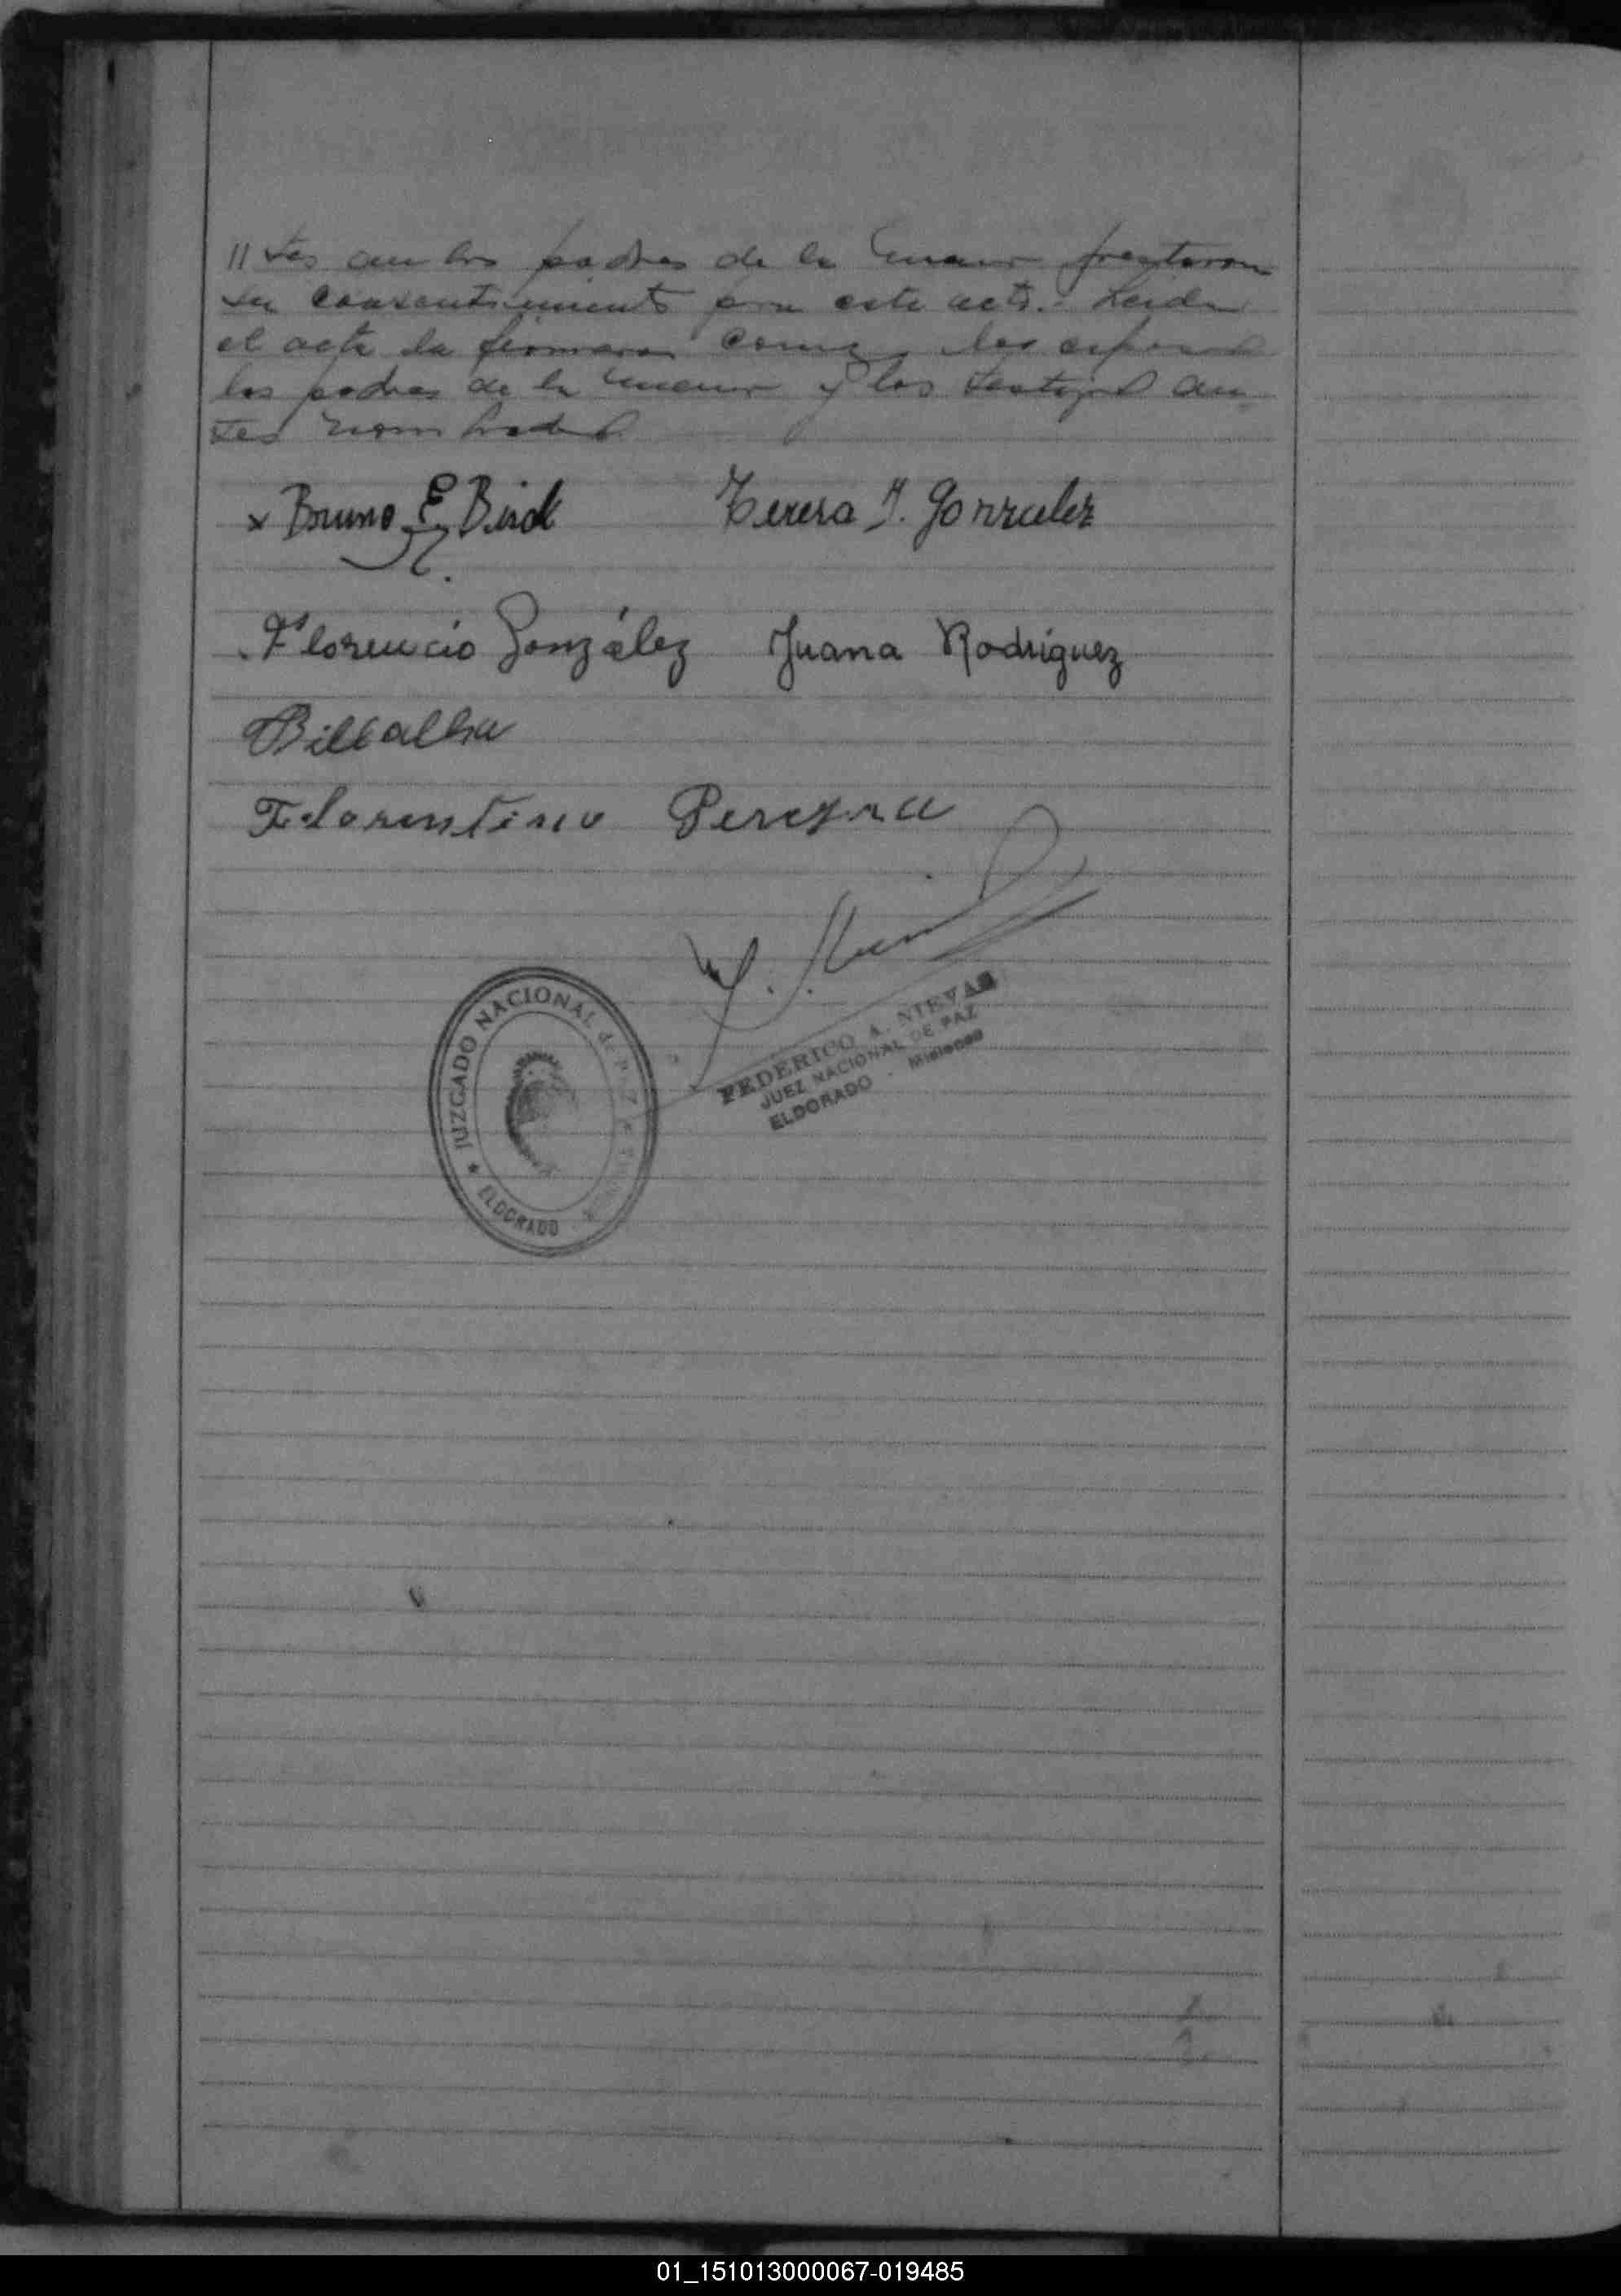 // tes ambos padres de la menor prestaron
su consentimiento para este acto.- Leida
el acta la firmaron como los esposos
los padres de la menor y los testigos an
tes nombrados
x Bruno E. Bird Teresa I. Gonzalez
Florencio González Juana Rodriguez
Billalba
Florentino Pereyra
JUZGADO NACIONAL de PAZ
ELDORADO
FEDERICO A. NIEVAS
JUEZ NACIONAL DE PAZ
ELDORADO - Misiones
01_151013000067-019485